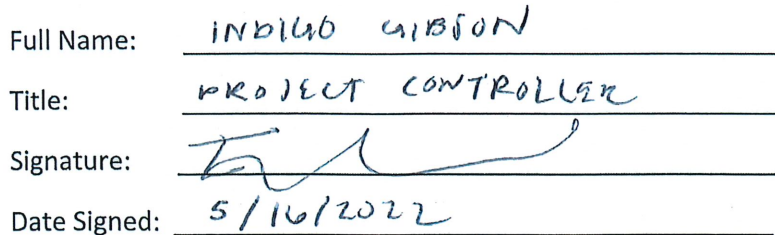 Full Name: INDIGO GIBSON
Title: PROJECT CONTROLLER
Signature:
Date Signed: 5/16/2022